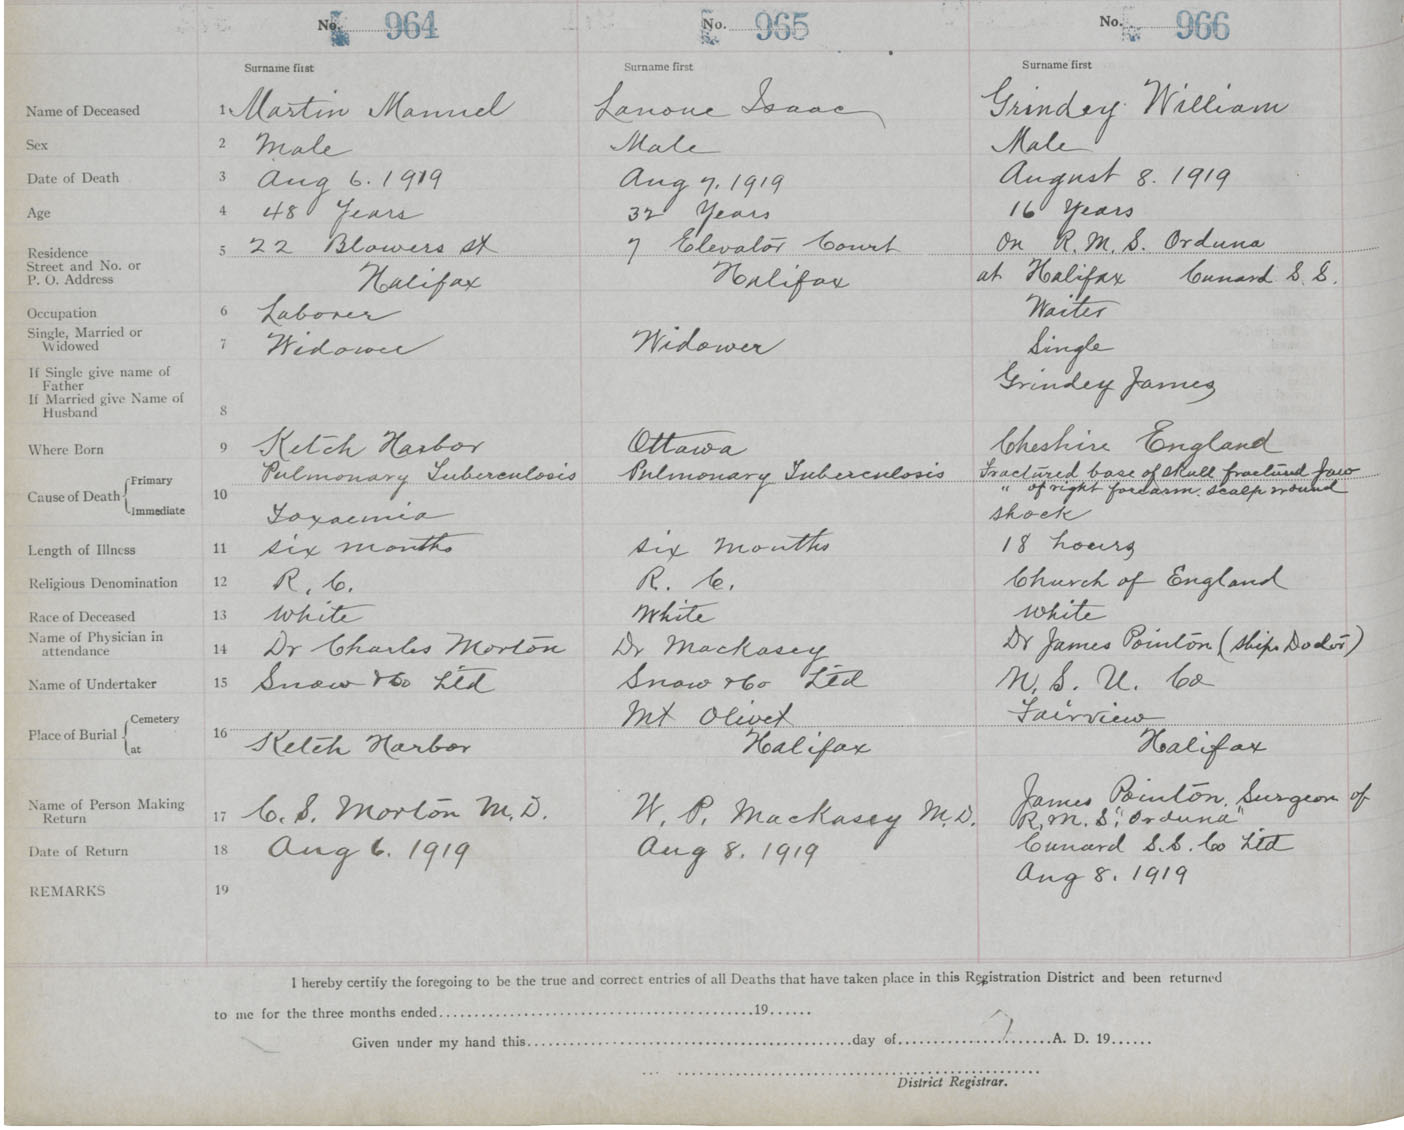 No. 964 No. 965 No. 966
Surname first Surname first Surname first
Name of Deceased 1 Martin Manuel Lanoue Isaac Grindey William
Sex 2 Male Male Male
Date of Death 3 Aug 6. 1919 Aug 7, 1919 August 8. 1919
Age 4 48 Years 32 Years 16 Years
Residence 5 22 Blowers st 7 Elevator Court On R. M. S. Orduna
Street and No. or
P. O. Address Halifax Halifax at Halifax Cunard S. S.
Occupation 6 Laborer Waiter
Single, Married or
Widowed 7 Widower Widower Single
If Single give name of
Father Grindey James
If Married give Name of
Husband 8
Where Born 9 Ketch Harbor Ottawa Cheshire England
Cause of Death Primary 10 Pulmonary Tuberculosis Pulmonary Tuberculosis Fractured base of skull fractured Jaw
" of right forearm. scalp wound
Immediate Toxaemia shock
Length of Illness 11 six months six months 18 hours
Religious Denomination 12 R. C. R. C. Church of England
Race of Deceased 13 White White White
Name of Physician in
attendance 14 Dr Charles Morton Dr Mackasey Dr James Pointon (Ships Doctor)
Name of Undertaker 15 Snow & Co Ltd Snow & Co Ltd N. S. U. Co
Place of Burial Cemetery 16 Mt Olivet Fairview
at Ketch Harbor Halifax Halifax
Name of Person Making
Return 17 C. S. Morton M. D. W. P. Mackasey M. D. James Pointon. Surgeon of
R. M. S. "Orduna"
Date of Return 18 Aug 6. 1919 Aug 8. 1919 Cunard S. S. Co Ltd
Aug 8. 1919
REMARKS 19
I hereby certify the foregoing to be the true and correct entries of all Deaths that have taken place in this Registration District and been returned
to me for the three months ended 19
Given under my hand this day of A. D. 19
District Registrar.